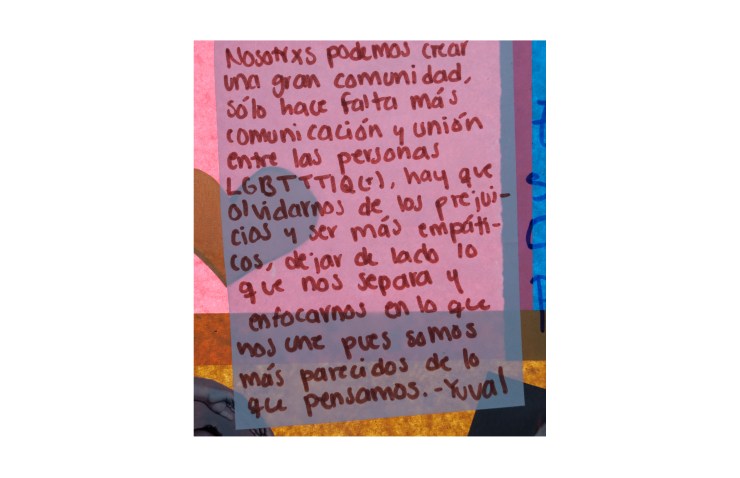 Nosotrxs podemos crear
una gran comunidad,
sólo hace falta más
comunicación y unión
entre las personas
LGBTTTIQ(+), hay que
olvidarnos de los prejui-
cios y ser más empáti-
cos, dejar de lado lo
que nos separa y
enfocarnos en lo que
nos une pues somos
más parecidos de lo
que pensamos. - Yuval